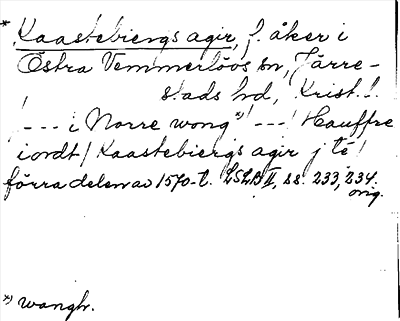 * Kaastebiergs agir, f. åker i
Östra Vemmerlöös sn, Järre-
stads hd, Krist. l.
! --- i Norre wong*) --- ! Hauffre
iordt / Kaastebiergs agir j té !
förra delen av 1570-t. LSLB II, ss. 233, 234.
orig.
*) wangh.